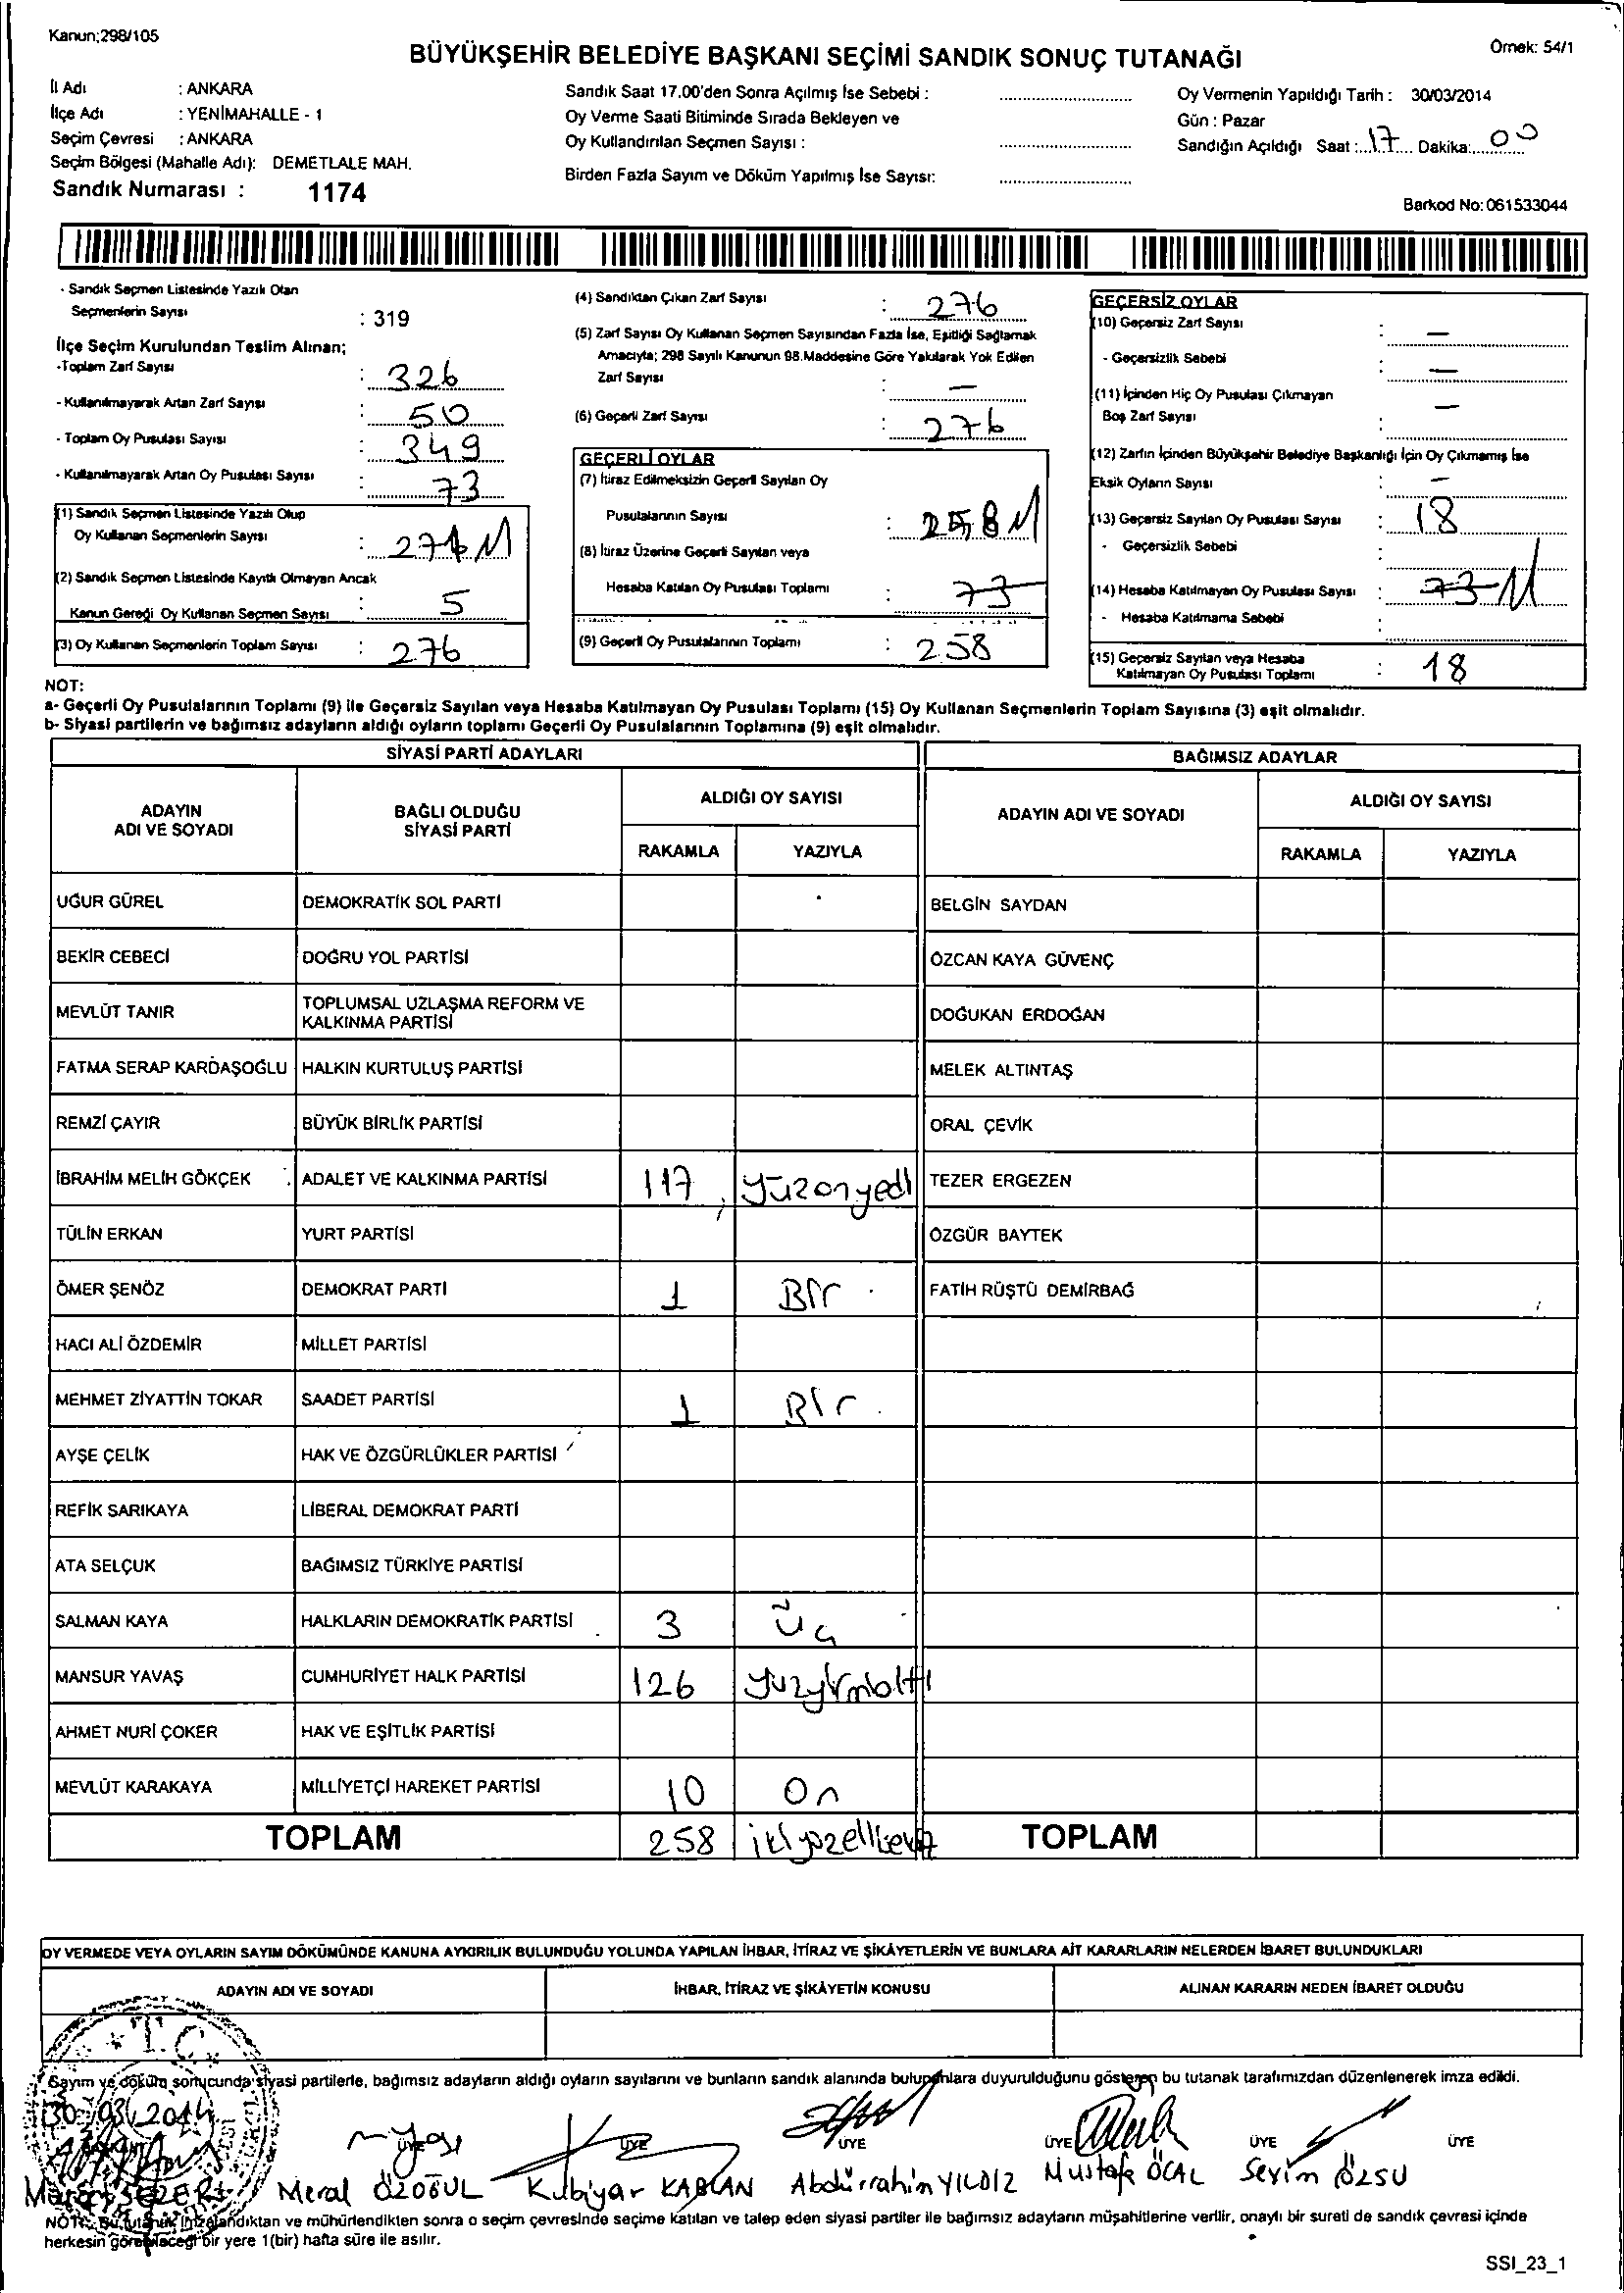 Kanun;298/105
BÜYÜKŞEHİR BELEDİYE BAŞKANI SEÇİMİ SANDIK SONUÇ TUTANAĞI
Örnek: 54/1
İl Adı : ANKARA
İlçe Adı : YENİMAHALLE - 1
Seçim Çevresi : ANKARA
Seçim Bölgesi (Mahalle Adı): DEMETLALE MAH.
Sandık Numarası : 1174
Sandık Saat 17.00'den Sonra Açılmış İse Sebebi :
Oy Verme Saati Bitiminde Sırada Bekleyen ve
Oy Kullandırılan Seçmen Sayısı :
Birden Fazla Sayım ve Döküm Yapılmış İse Sayısı:
Oy Vermenin Yapıldığı Tarih : 30/03/2014
Gün : Pazar
Sandığın Açıldığı Saat : 17 Dakika: 00
Barkod No: 061533044
- Sandık Seçmen Listesinde Yazılı Olan
Seçmenlerin Sayısı : 319
İlçe Seçim Kurulundan Teslim Alınan;
-Toplam Zarf Sayısı : 326
- Kullanılmayarak Artan Zarf Sayısı : 50
- Toplam Oy Pusulası Sayısı : 349
- Kullanılmayarak Artan Oy Pusulası Sayısı : 73
(1) Sandık Seçmen Listesinde Yazılı Olup
Oy Kullanan Seçmenlerin Sayısı :
(2) Sandık Seçmen Listesinde Kayıtlı Olmayan Ancak
Kanun Gereği Oy Kullanan Seçmen Sayısı : 5
(3) Oy Kullanan Seçmenlerin Toplam Sayısı : 276
(4) Sandıktan Çıkan Zarf Sayısı : 276
(5) Zarf Sayısı Oy Kullanan Seçmen Sayısından Fazla İse, Eşitliği Sağlamak
Amacıyla; 298 Sayılı Kanunun 98.Maddesine Göre Yakılarak Yok Edilen
Zarf Sayısı : -
(6) Geçerli Zarf Sayısı : 276
GEÇERLİ OYLAR
(7) İtiraz Edilmeksizin Geçerli Sayılan Oy
Pusulalarının Sayısı : 258
(8) İtiraz Üzerine Geçerli Sayılan veya
Hesaba Katılan Oy Pusulası Toplamı : 73
(9) Geçerli Oy Pusulalarının Toplamı : 258
GEÇERSİZ OYLAR
(10) Geçersiz Zarf Sayısı : -
- Geçersizlik Sebebi : -
(11) İçinden Hiç Oy Pusulası Çıkmayan
Boş Zarf Sayısı : -
(12) Zarfın İçinden Büyükşehir Belediye Başkanlığı İçin Oy Çıkmamış İse
Eksik Oyların Sayısı : -
(13) Geçersiz Sayılan Oy Pusulası Sayısı : 18
- Geçersizlik Sebebi :
(14) Hesaba Katılmayan Oy Pusulası Sayısı : 73
- Hesaba Katılmama Sebebi :
(15) Geçersiz Sayılan veya Hesaba
Katılmayan Oy Pusulası Toplamı : 18
NOT:
a- Geçerli Oy Pusulalarının Toplamı (9) ile Geçersiz Sayılan veya Hesaba Katılmayan Oy Pusulası Toplamı (15) Oy Kullanan Seçmenlerin Toplam Sayısına (3) eşit olmalıdır.
b- Siyasi partilerin ve bağımsız adayların aldığı oyların toplamı Geçerli Oy Pusulalarının Toplamına (9) eşit olmalıdır.
SİYASİ PARTİ ADAYLARI BAĞIMSIZ ADAYLAR
ADAYIN ADI VE SOYADI BAĞLI OLDUĞU SİYASİ PARTİ ALDIĞI OY SAYISI ADAYIN ADI VE SOYADI ALDIĞI OY SAYISI
RAKAMLA YAZIYLA RAKAMLA YAZIYLA
UĞUR GÜREL DEMOKRATİK SOL PARTİ BELGİN SAYDAN
BEKİR CEBECİ DOĞRU YOL PARTİSİ ÖZCAN KAYA GÜVENÇ
MEVLÜT TANIR TOPLUMSAL UZLAŞMA REFORM VE KALKINMA PARTİSİ DOĞUKAN ERDOĞAN
FATMA SERAP KARDAŞOĞLU HALKIN KURTULUŞ PARTİSİ MELEK ALTINTAŞ
REMZİ ÇAYIR BÜYÜK BİRLİK PARTİSİ ORAL ÇEVİK
İBRAHİM MELİH GÖKÇEK ADALET VE KALKINMA PARTİSİ 117 yüzonyedi TEZER ERGEZEN
TÜLİN ERKAN YURT PARTİSİ ÖZGÜR BAYTEK
ÖMER ŞENÖZ DEMOKRAT PARTİ 1 Bir FATİH RÜŞTÜ DEMİRBAĞ
HACI ALİ ÖZDEMİR MİLLET PARTİSİ
MEHMET ZİYATTİN TOKAR SAADET PARTİSİ 1 Bir
AYŞE ÇELİK HAK VE ÖZGÜRLÜKLER PARTİSİ
REFİK SARIKAYA LİBERAL DEMOKRAT PARTİ
ATA SELÇUK BAĞIMSIZ TÜRKİYE PARTİSİ
SALMAN KAYA HALKLARIN DEMOKRATİK PARTİSİ 3 Üç
MANSUR YAVAŞ CUMHURİYET HALK PARTİSİ 126 yuzyirmialtı
AHMET NURİ ÇOKER HAK VE EŞİTLİK PARTİSİ
MEVLÜT KARAKAYA MİLLİYETÇİ HAREKET PARTİSİ 10 On
TOPLAM 258 TOPLAM
OY VERMEDE VEYA OYLARIN SAYIM DÖKÜMÜNDE KANUNA AYKIRILIK BULUNDUĞU YOLUNDA YAPILAN İHBAR, İTİRAZ VE ŞİKÂYETLERİN VE BUNLARA AİT KARARLARIN NELERDEN İBARET BULUNDUKLARI
ADAYIN ADI VE SOYADI İHBAR, İTİRAZ VE ŞİKÂYETİN KONUSU ALINAN KARARIN NEDEN İBARET OLDUĞU
T.C.
Sayım ve döküm sonucunda siyasi partilerle, bağımsız adayların aldığı oyların sayılarını ve bunların sandık alanında bulunanlara duyurulduğunu gösteren bu tutanak tarafımızdan düzenlenerek imza edildi.
30/03/2014
ÜYE ÜYE ÜYE ÜYE ÜYE ÜYE
Meral ÖZOĞUL Kubiyar KAPLAN Abdürrahim YILDIZ Mustafa ÖCAL Sevim ÖZSU
NOT: Bu tutanak imzalandıktan ve mühürlendikten sonra o seçim çevresinde seçime katılan ve talep eden siyasi partiler ile bağımsız adayların müşahitlerine verilir, onaylı bir sureti de sandık çevresi içinde
herkesin görebileceği bir yere 1(bir) hafta süre ile asılır.
SSI_23_1